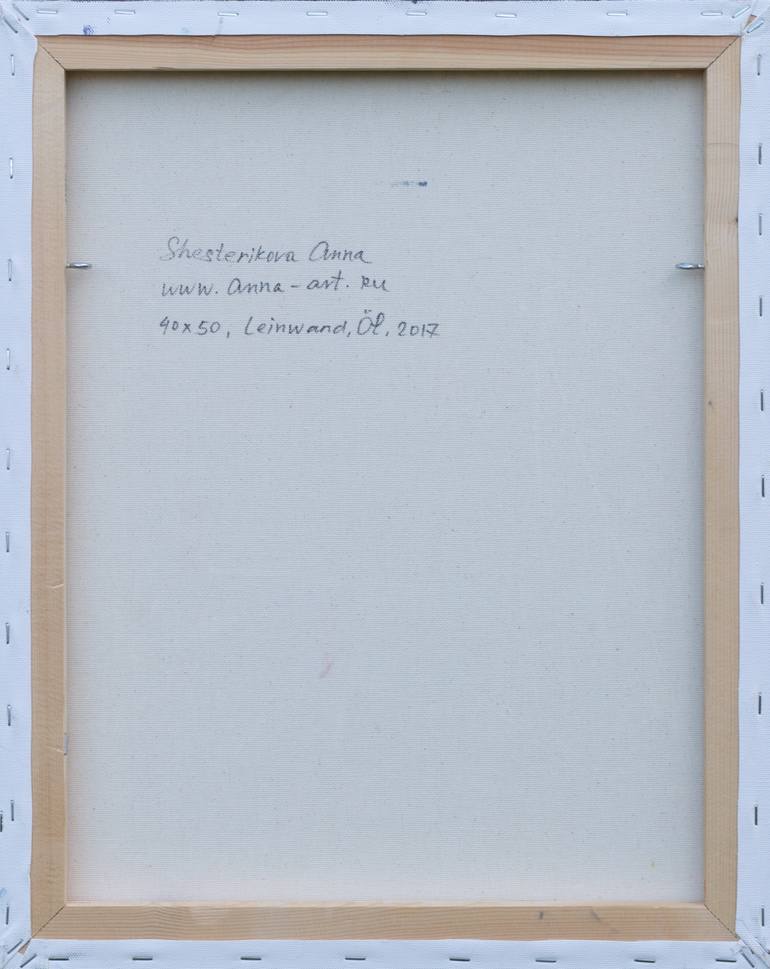 Shesterikova Anna
www. Anna-art. Ru
40x50, Leinwand, Öl, 2017